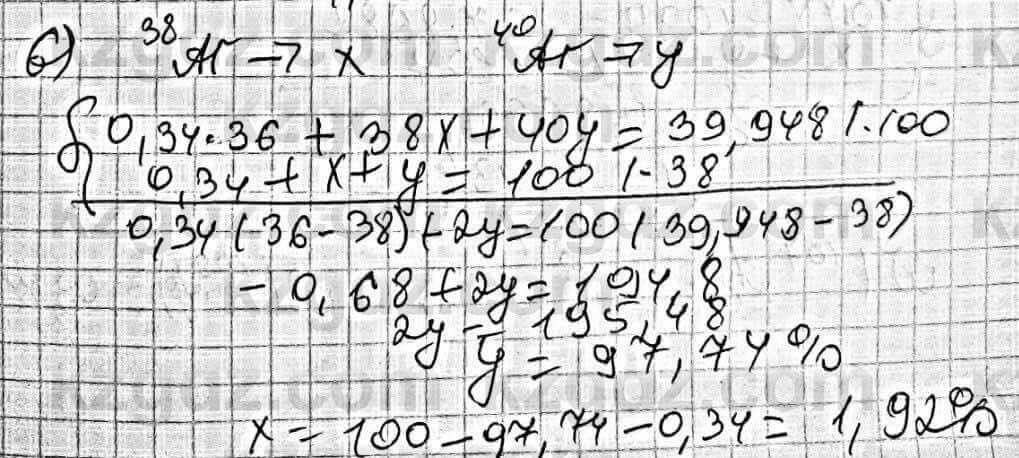 б) ³⁸Ar → x ⁴⁰Ar → y
0,34·36 + 38x + 40y = 39,948 |·100
0,34 + x + y = 100 |·38
0,34(36-38) + 2y = 100(39,948-38)
-0,68 + 2y = 194,8
2y = 195,48
y = 97,74%
x = 100 - 97,74 - 0,34 = 1,92%